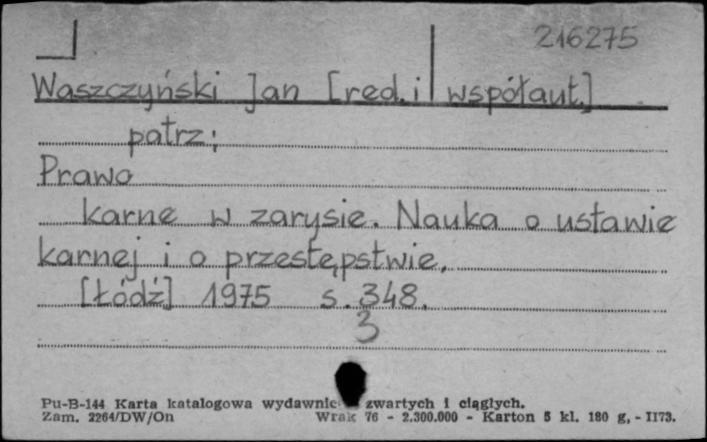 216275
Waszczyński Jan [red. i współaut.]
patrz:
Prawo
karne w zarysie. Nauka o ustawie
karnej i o przestępstwie.
[Łódź] 1975 s. 348.
3
Pu-B-144 Karta katalogowa wydawnic zwartych i ciągłych.
Zam. 2264/DW/On Wrak 76 - 2.300.000 - Karton 5 kl. 180 g. - II73.